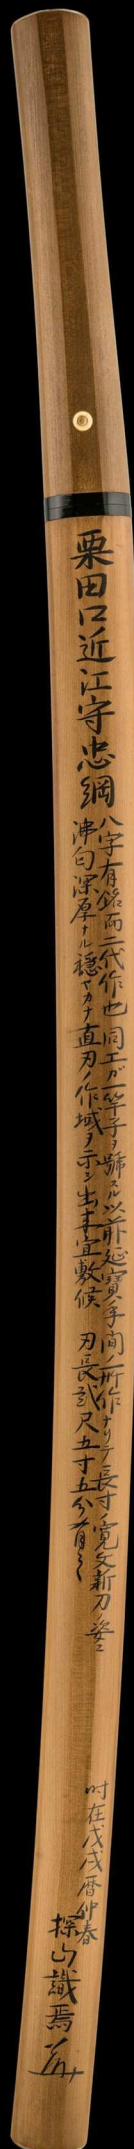 粟田口近江守忠綱
八字有銘而二代作也同工ガ一竿子ヲ號スル以前延寶年間ノ所作ナリテ長寸ノ寛文新刀ノ姿ニ
沸匂深厚ナル穏ヤカナ直刃ノ作域ヲ示シ出来宜敷候 刃長貳尺五寸五分有之
时在戊戌暦仲春
探山識焉